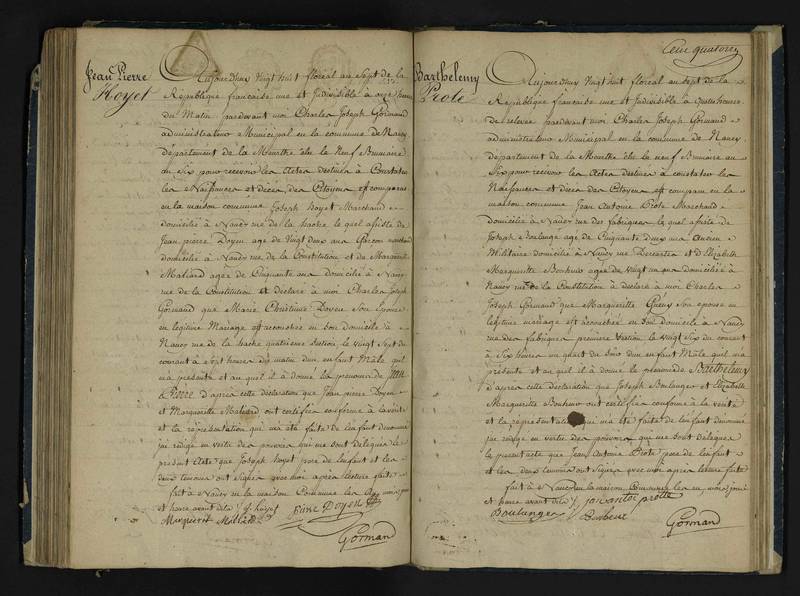 Jean Pierre
Hoyet
Aujourdhui vingt huit floreal an Sept de la
République francaise une et Indivisible à onze heures
du Matin pardevant moi Charles Joseph Gormand
administrateur Municipal en la commune de Nancy
département de la Meurthe élu le Neuf Brumaire
an Six pour recevoir les Actes destinés à Constater
les Naissances et décès des Citoyens est comparu
en la maison commune Joseph hoyet Marchand
domicilié à Nancy rue de la hache le quel assisté de
Jean pierre Doyen agé de Vingt deux ans Garcon marchand
domicilié à Nancy rue de la Constitution et de Marguerite
Maliard agée de Cinquante ans domicilié à Nancy
rue de la Constitution et declaré à moi Charles Joseph
Gormand que Marie Christinne Doyen son Epouse
en légitime Mariage est accouchée en son domicile à
Nancy rue de la hache quatrieme section, le vingt Sept du
courant à sept heures du matin d'un enfant Mâle quil
ma présenté et au quel il à donné les prenoms de Jean
Pierre d'après cette déclaration que Jean pierre Doyen
et Marguerite Maliard ont certifiée conforme à la vérité
et la représentation qui ma été faite de lenfant denommé
jai rédigé en vertu des pouvoirs qui me sont délégués le
présent Acte que Joseph hoyet pere de lenfant et les
deux témoins ont signés avec moi après lecture faite
fait à Nancy en la maison Commune les an, mois, jour
et heure avant dits J. hoyet
Marguerit Maliard pierre Doyen
Gormand
Cent quatorze
Barthelemy
Prote
Aujourdhui Vingt huit floreal an Sept de la
République francaise une et Indivisible à quatre heures
de relevée pardevant moi Charles Joseph Gormand
administrateur Municipal en la commune de Nancy
département de la Meurthe élu le neuf Brumaire an
Six pour recevoir les Actes destinés à constater les
Naissances et décès des Citoyens est comparu en la
maison commune Jean Antoine Prote Marchand
domicilié à Nancy rue des fabriques le quel assisté de
Joseph Boulangé agé de Cinquante deux ans ancien
Militaire domicilié à Nancy rue Descartes et d'Elizabeth
Marguerite agée de vingt un ans domiciliée à
Nancy rue de la Constitution à déclaré à moi Charles
Joseph Gormand que Margueritte son epouse en
legitime mariage est accouchée en son domicile à Nancy
rue des fabriques premiere section le vingt six du courant
à six heures un quart du soir d'un enfant Mâle quil ma
présenté et au quel il à donné le prenom de Barthelemy
d'après cette déclaration que Joseph Boulanger et Elizabeth
Marguerite ont certifiée conforme à la vérité
et la représentation qui ma été faite de lenfant denommé
jai rédigé en vertu des pouvoirs qui me sont délégués
le présent acte que Jean Antoine Prote pere de lenfant
et les deux témoins ont signés avec moi après lecture faite
fait à Nancy en la maison Commune les an, mois, jour
et heure avant dits J. jan antoi protte
Boulanger
Gormand